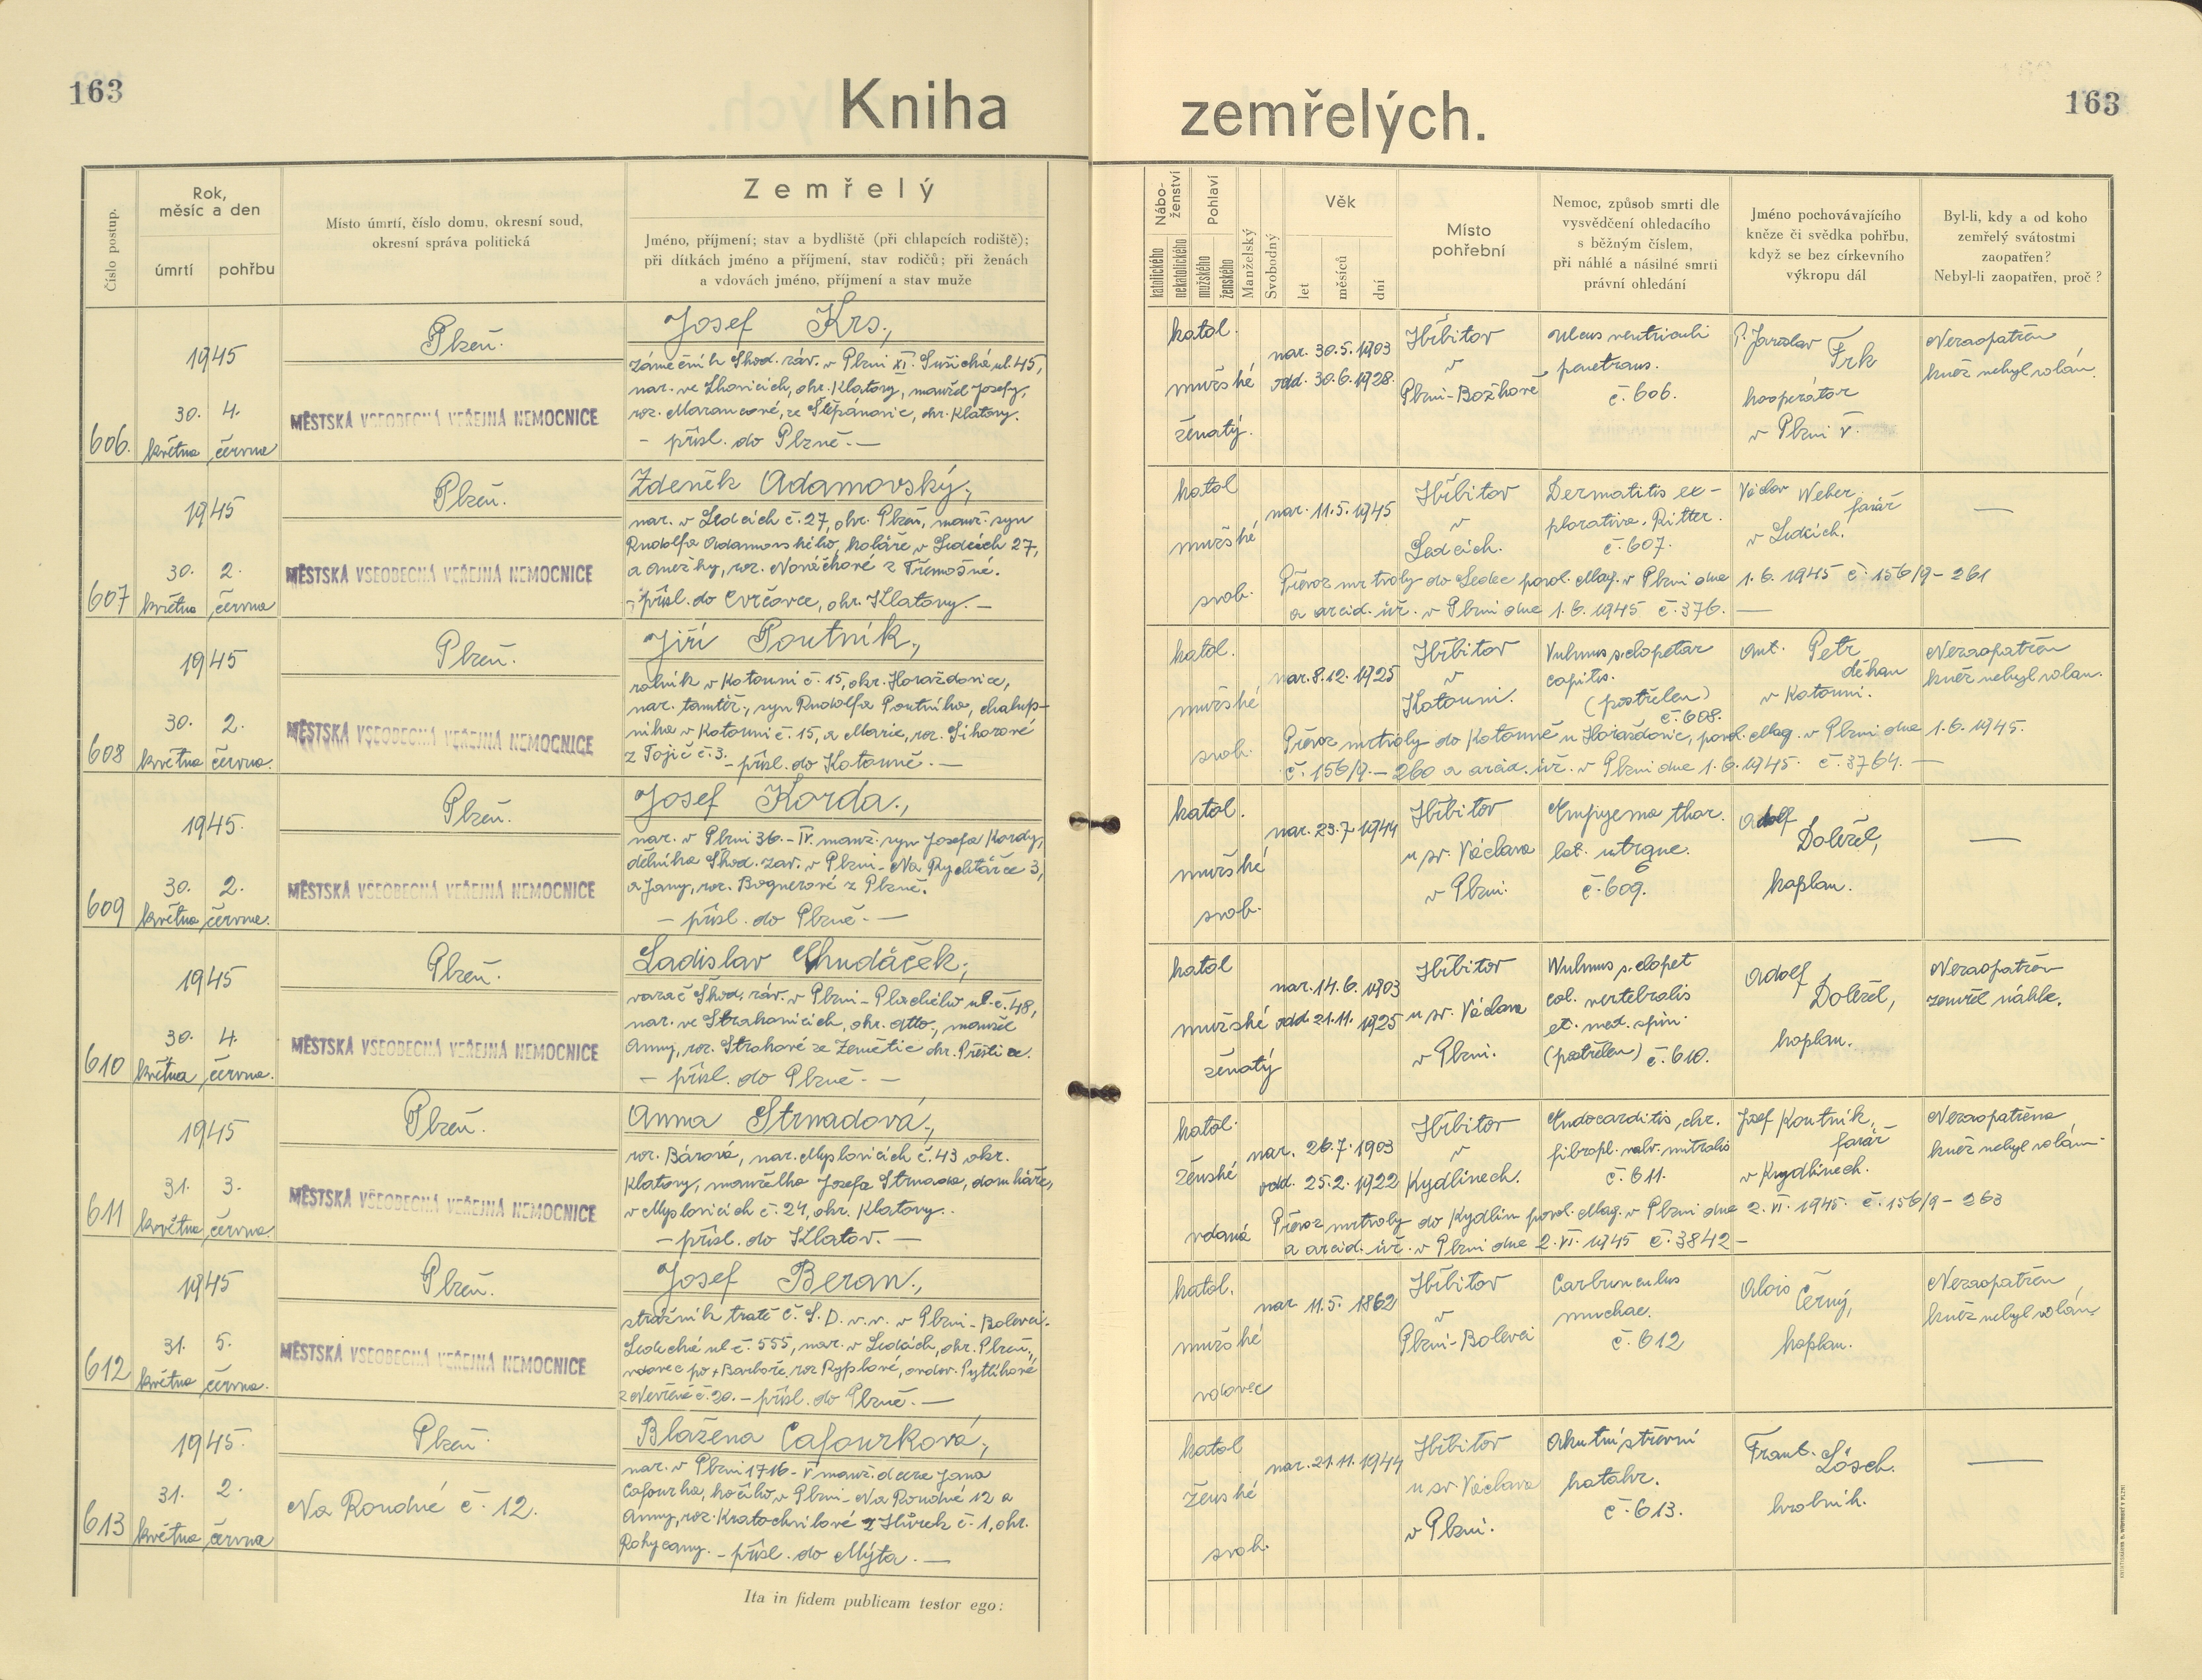 163
Kniha
zemřelých.
163
Číslo postup.
Rok,
měsíc a den
úmrtí
pohřbu
Místo úmrtí, číslo domu, okresní soud,
okresní správa politická
Zemřelý
Jméno, příjmení; stav a bydliště (při chlapcích rodiště);
při dítkách jméno a příjmení, stav rodičů; při ženách
a vdovách jméno, příjmení a stav muže
Nábo-
ženství
katolického
nekatolického
Pohlaví
mužského
ženského
Manželský
Svobodný
Věk
let
měsíců
dní
Místo
pohřební
Nemoc, způsob smrti dle
vysvědčení ohledacího
s běžným číslem,
při náhlé a násilné smrti
právní ohledání
Jméno pochovávajícího
kněze či svědka pohřbu,
když se bez církevního
výkropu dál
Byl-li, kdy a od koho
zemřelý svátostmi
zaopatřen?
Nebyl-li zaopatřen, proč?
606.
1945
30. 4.
května června
Plzeň.
MĚSTSKÁ VŠEOBECNÁ VEŘEJNÁ NEMOCNICE
Josef Krs,
zámečník Škod. záv. v Plzni XI. Sušická ul. 45,
nar. ve Lhovicích, okr. Klatovy, manžel Josefy,
roz. Marancové, ze Štěpánovic, okr. Klatovy.
– přísl. do Plzně. —
katol.
mužské
ženatý.
nar. 30.5.1903
odd. 30.6.1928.
Hřbitov
v
Plzni-Božkově
Ulcus ventriculi
penetrans.
č. 606.
P. Jaroslav
Frk
kooperátor
v Plzni V.
Nezaopatřen
kněz nebyl volán.
607
1945
30. 2.
května června
Plzeň.
MĚSTSKÁ VŠEOBECNÁ VEŘEJNÁ NEMOCNICE
Zdeněk Adamovský,
nar. v Ledcích č. 27, okr. Plzeň, manž. syn
Rudolfa Adamovského, koláře v Ledcích 27,
a Anežky, roz. Nováčkové z Třemošné.
– přísl. do Cvrčovce, okr. Klatovy. —
katol
mužské
svob.
nar. 11.5.1945
Hřbitov
v
Ledcích.
Dermatitis ex-
plorativa. Ritter.
č. 607.
Václav Weber,
farář
v Ledcích.
—
Převoz mrtvoly do Ledec povol. Mag. v Plzni dne 1.6.1945 č. 156/9 – 261
a arcid. úř. v Plzni dne 1.6.1945 č. 376. —
608
1945
30. 2.
května června.
Plzeň.
MĚSTSKÁ VŠEOBECNÁ VEŘEJNÁ NEMOCNICE
Jiří Poutník,
rolník v Kotouni č. 15, okr. Horažďovice,
nar. tamtéž, syn Rudolfa Poutníka, chalup-
níka v Kotouni č. 15, a Marie, roz. Sihorové
z Tojič č. 3. – přísl. do Kotouně. —
katol.
mužské
svob.
nar. 8.12.1925
Hřbitov
v
Kotouni.
Vulnus sclopetar
capitis.
(postřelen)
č. 608.
Ant. Petr
děkan
v Kotouni.
Nezaopatřen
kněz nebyl volán.
Převoz mrtvoly do Kotouně u Horažďovic, povol. Mag. v Plzni dne 1.6.1945.
č. 156/9. – 260 a arcid. úř. v Plzni dne 1.6.1945. č. 3764. —
609
1945.
30. 2.
května června.
Plzeň.
MĚSTSKÁ VŠEOBECNÁ VEŘEJNÁ NEMOCNICE
Josef Korda,
nar. v Plzni 36. – IV. manž. syn Josefa Kordy,
dělníka Škod. záv. v Plzni – Na Rychtářce 3,
a Jany, roz. Bognerové z Plzně.
– přísl. do Plzně. —
katol.
mužské
svob.
nar. 23.7.1944
Hřbitov
u sv. Václava
v Plzni.
Empyema thor.
lat. utrque.
č. 609.
Adolf
Doležel,
kaplan.
—
610
1945
30. 4.
května června.
Plzeň.
MĚSTSKÁ VŠEOBECNÁ VEŘEJNÁ NEMOCNICE
Ladislav Chudáček,
varač Škod. záv. v Plzni – Plachého ul. č. 48,
nar. ve Strakonicích, okr. dtto., manžel
Anny, roz. Strakové ze Zemětic okr. Přeštice.
– přísl. do Plzně. —
katol
mužské
ženatý
nar. 14.6.1903
odd. 21.11.1925
Hřbitov
u sv. Václava
v Plzni.
Vulnus sclopet
col. vertebralis
et. med. spin.
(postřelen) č. 610.
Adolf
Doležel,
kaplan.
Nezaopatřen
zemřel náhle.
611
1945
31. 3.
května června.
Plzeň.
MĚSTSKÁ VŠEOBECNÁ VEŘEJNÁ NEMOCNICE
Anna Strnadová,
roz. Bárová, nar. Myslovicích č. 43 okr.
Klatovy, manželka Josefa Strnada, domkáře,
v Myslovicích č. 24, okr. Klatovy.
– přísl. do Klatov. —
katol.
ženské
vdaná
nar. 26.7.1903
odd. 25.2.1922
Hřbitov
v
Kydlinech.
Endocarditis, chr.
fibropl. valv. mitralis
č. 611.
Josef Koutník,
farář
v Kydlinech.
Nezaopatřena
kněz nebyl volán.
Převoz mrtvoly do Kydlin povol. Mag. v Plzni dne 2.VI.1945. č. 156/9 – 263
a arcid. úř. v Plzni dne 2.VI.1945 č. 3842 –
612
1945
31. 5.
května června.
Plzeň.
MĚSTSKÁ VŠEOBECNÁ VEŘEJNÁ NEMOCNICE
Josef Beran,
strážník tratě Č. S. D. v. v. v Plzni – Bolevci.
Ledecká ul č. 555, nar. v Ledcích, okr. Plzeň,
vdovec po + Barboře, roz Ryplové, ovdov. Pytlíkové
z Nevřeně č. 20. – přísl. do Plzně. —
katol.
mužské
vdovec
nar. 11.5.1862
Hřbitov
v
Plzni-Bolevci
Carbunculus
nuchae.
č. 612
Alois
Černý,
kaplan.
Nezaopatřen
kněz nebyl volán.
613
1945.
31. 2.
května června
Plzeň.
Na Roudné č. 12.
Blažena Cafourková,
nar. v Plzni 1716 – V manž. dcera Jana
Cafourka, kočího v Plzni – Na Roudné 12 a
Anny, roz. Kratochvílové z Hůrek č. 1, okr.
Rokycany. – přísl. do Mýta. —
katol
ženské
svob.
nar. 21.11.1944
Hřbitov
u sv. Václava
v Plzni.
Akutní střevní
katahr.
č. 613.
Frant. Lösch.
hrobník.
—
Ita in fidem publicam testor ego: